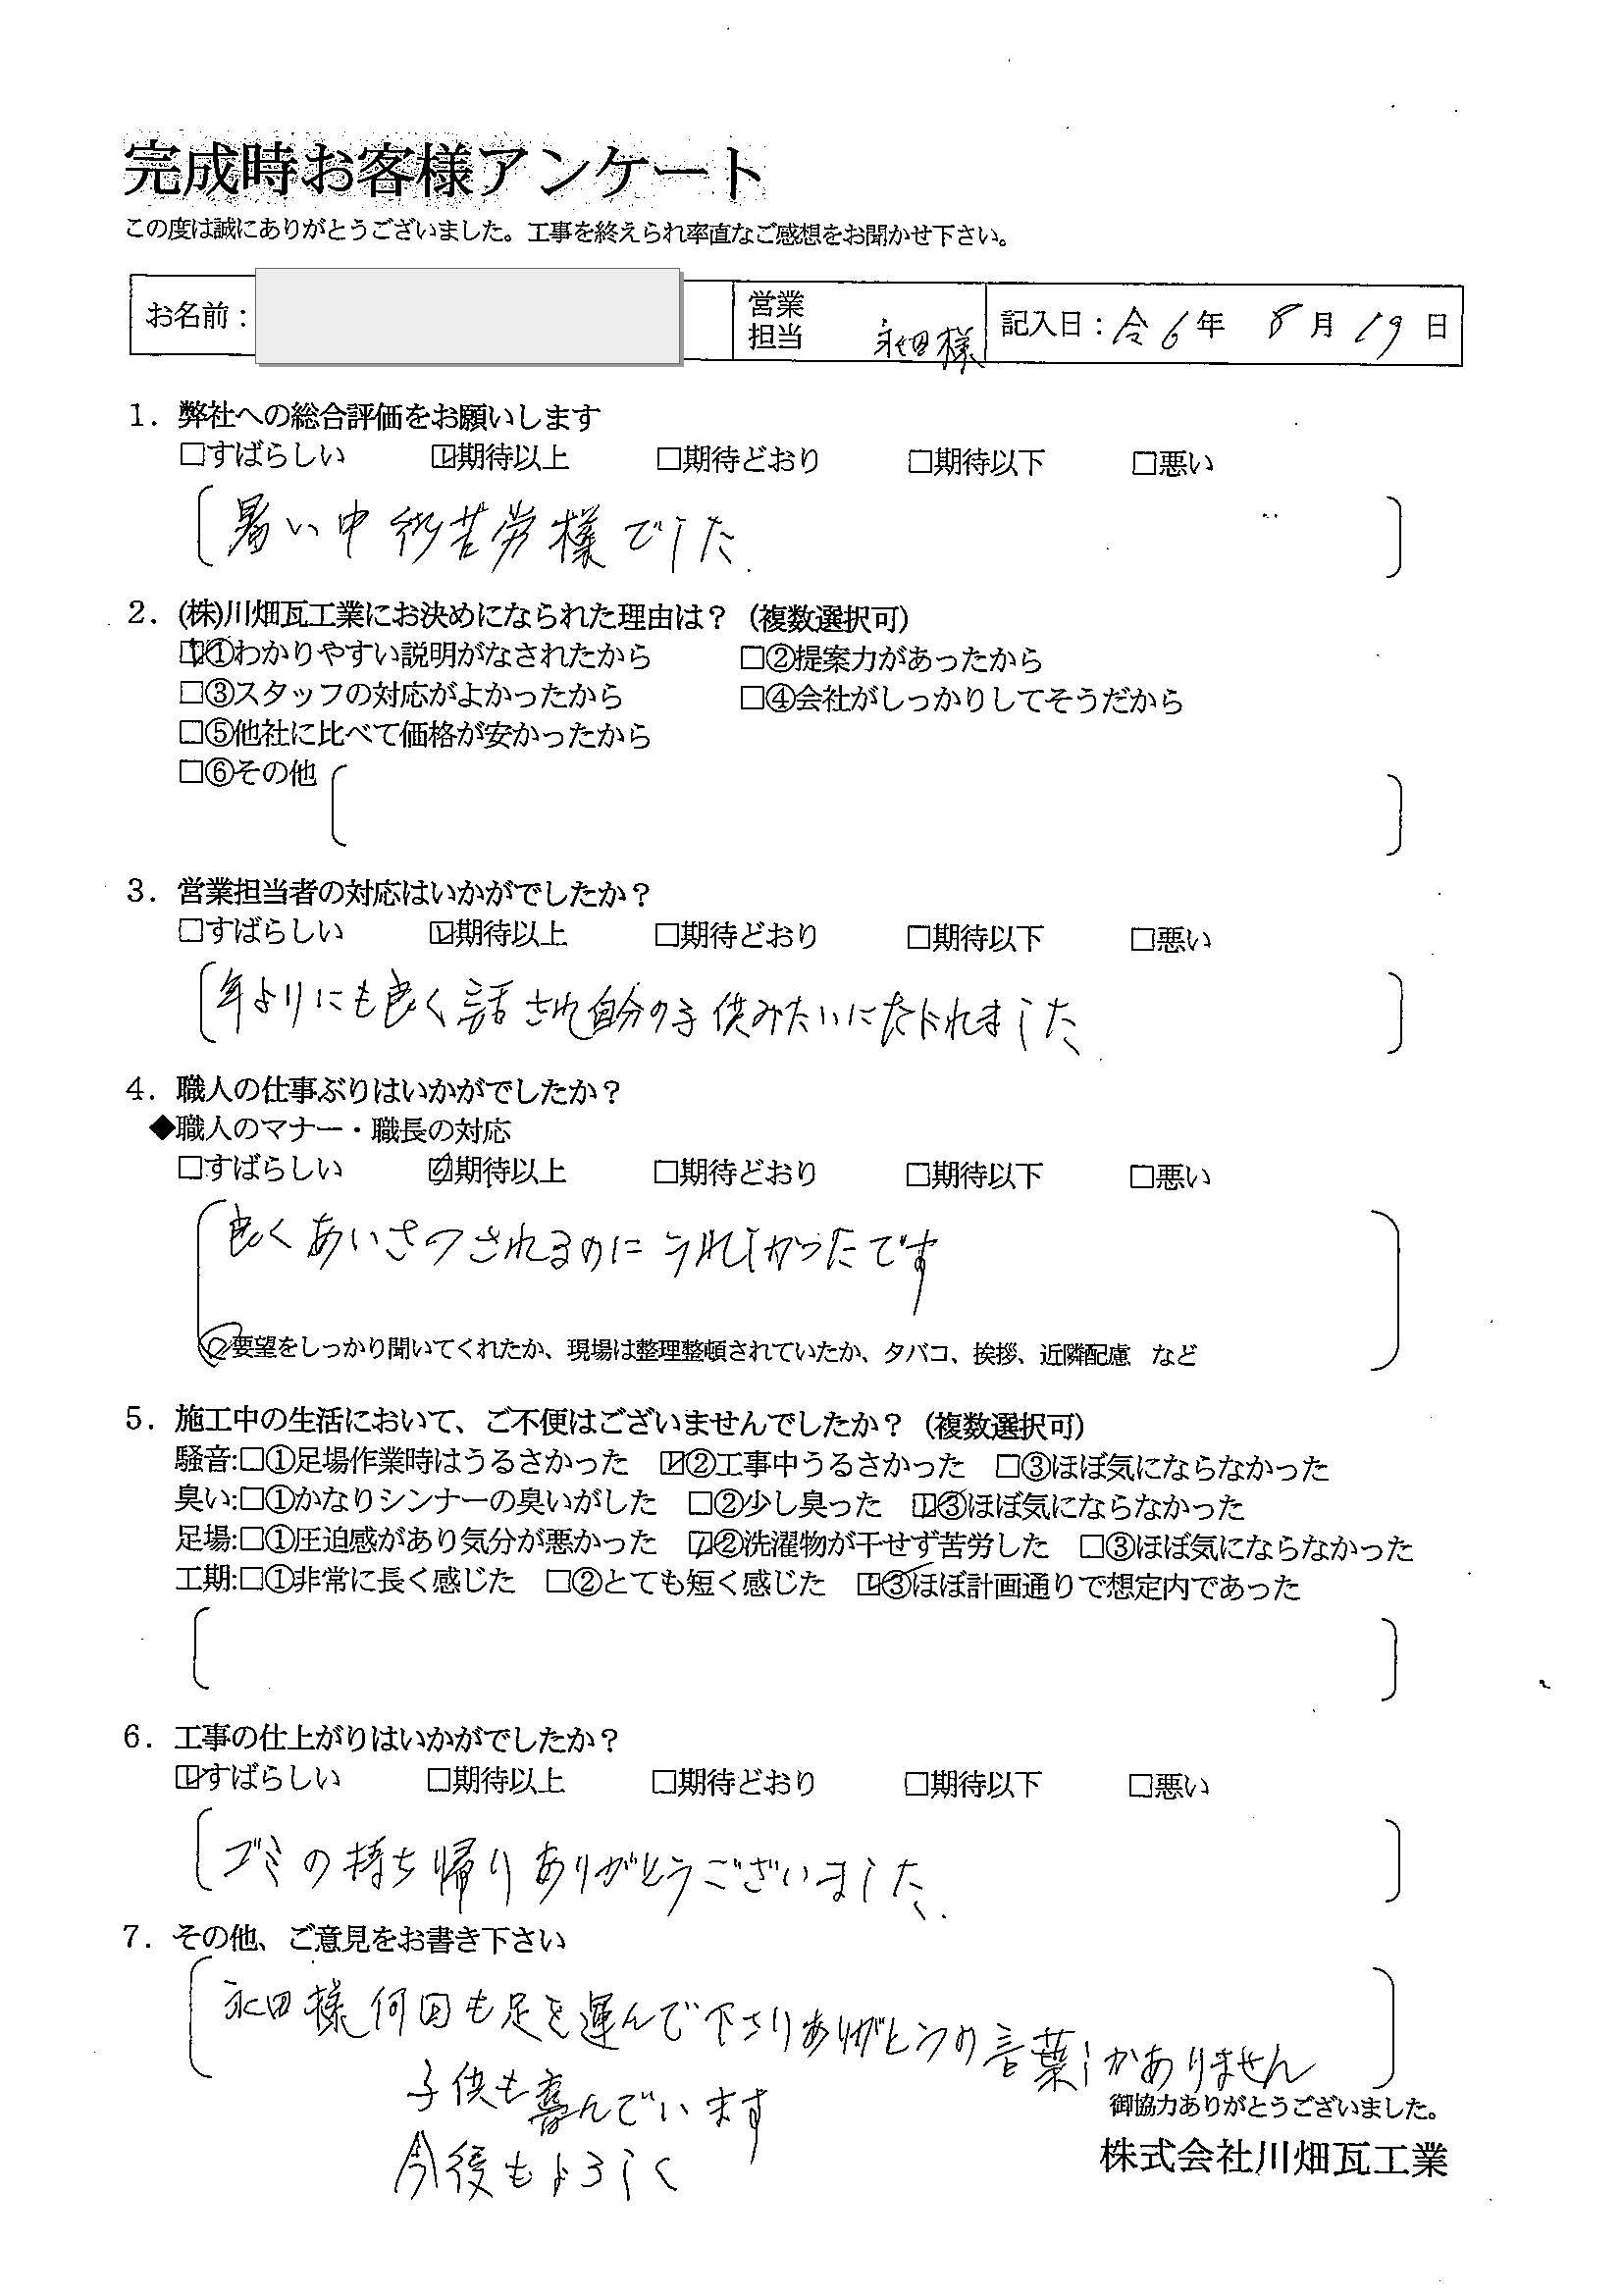 完成時お客様アンケート
この度は誠にありがとうございました。工事を終えられ率直なご感想をお聞かせ下さい。
お名前： 営業担当 永田様 記入日：令6年 8月19日
1．弊社への総合評価をお願いします
□すばらしい ☑期待以上 □期待どおり □期待以下 □悪い
暑い中御苦労様でした.
2．(株)川畑瓦工業にお決めになられた理由は？（複数選択可）
☑①わかりやすい説明がなされたから □②提案力があったから
□③スタッフの対応がよかったから □④会社がしっかりしてそうだから
□⑤他社に比べて価格が安かったから
□⑥その他
3．営業担当者の対応はいかがでしたか？
□すばらしい ☑期待以上 □期待どおり □期待以下 □悪い
年よりにも良く話され自分の子供みたいに ました.
4．職人の仕事ぶりはいかがでしたか？
◆職人のマナー・職長の対応
□すばらしい ☑期待以上 □期待どおり □期待以下 □悪い
良くあいさつされるのにうれしかったです
○要望をしっかり聞いてくれたか、現場は整理整頓されていたか、タバコ、挨拶、近隣配慮 など
5．施工中の生活において、ご不便はございませんでしたか？（複数選択可）
騒音:□①足場作業時はうるさかった ☑②工事中うるさかった □③ほぼ気にならなかった
臭い:□①かなりシンナーの臭いがした □②少し臭った ☑③ほぼ気にならなかった
足場:□①圧迫感があり気分が悪かった ☑②洗濯物が干せず苦労した □③ほぼ気にならなかった
工期:□①非常に長く感じた □②とても短く感じた ☑③ほぼ計画通りで想定内であった
6．工事の仕上がりはいかがでしたか？
☑すばらしい □期待以上 □期待どおり □期待以下 □悪い
ゴミの持ち帰りありがとうございました.
7．その他、ご意見をお書き下さい
永田様何回も足を運んで下さりありがとうの言葉しかありません
子供も喜んでいます
今後もよろしく
御協力ありがとうございました。
株式会社川畑瓦工業